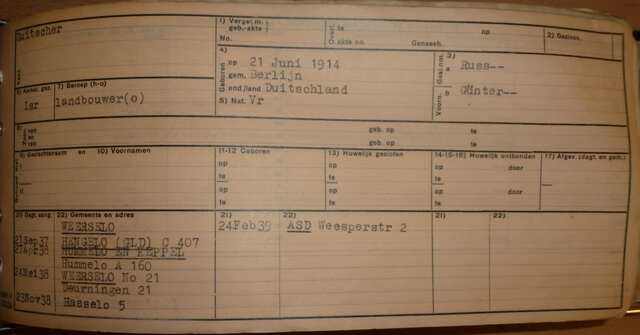 Duitscher
1) Verget.m.
geb.-akte:
No.
Overl. te op
O akte no. Geneesh.
2) Gezinsn.
6) Kerkel. gez.
Isr
7) Beroep (h-o)
landbouwer(o)
4)
Geboren
op 21 Juni 1914
gem. Berlijn
ond/land Duitschland
5) Nat. Vr
3)
Gesl.nm.
a Russ--
Voorn.
b Günter--
8)
van
en
van
geb. op te
geb. op te
9) Geslachtsnaam en 10) Voornamen
11-12 Geboren
13) Huwelijk gesloten
14-15-16) Huwelijk ontbonden
17) Afgev. (dagt. en gem.)
op op op door
te te te
op op op door
te te te
20) Dagt. aang.
22) Gemeente en adres
21)
22)
21)
22)
WEERSELO
24Feb39 ASD Weesperstr 2
21Sep37 HENGELO (GLD) C 407
27Apr38 HUMMELO EN KEPPEL
Hummelo A 160
24Mei38 WEERSELO No 21
Deurningen 21
23Nov38 Hasselo 5